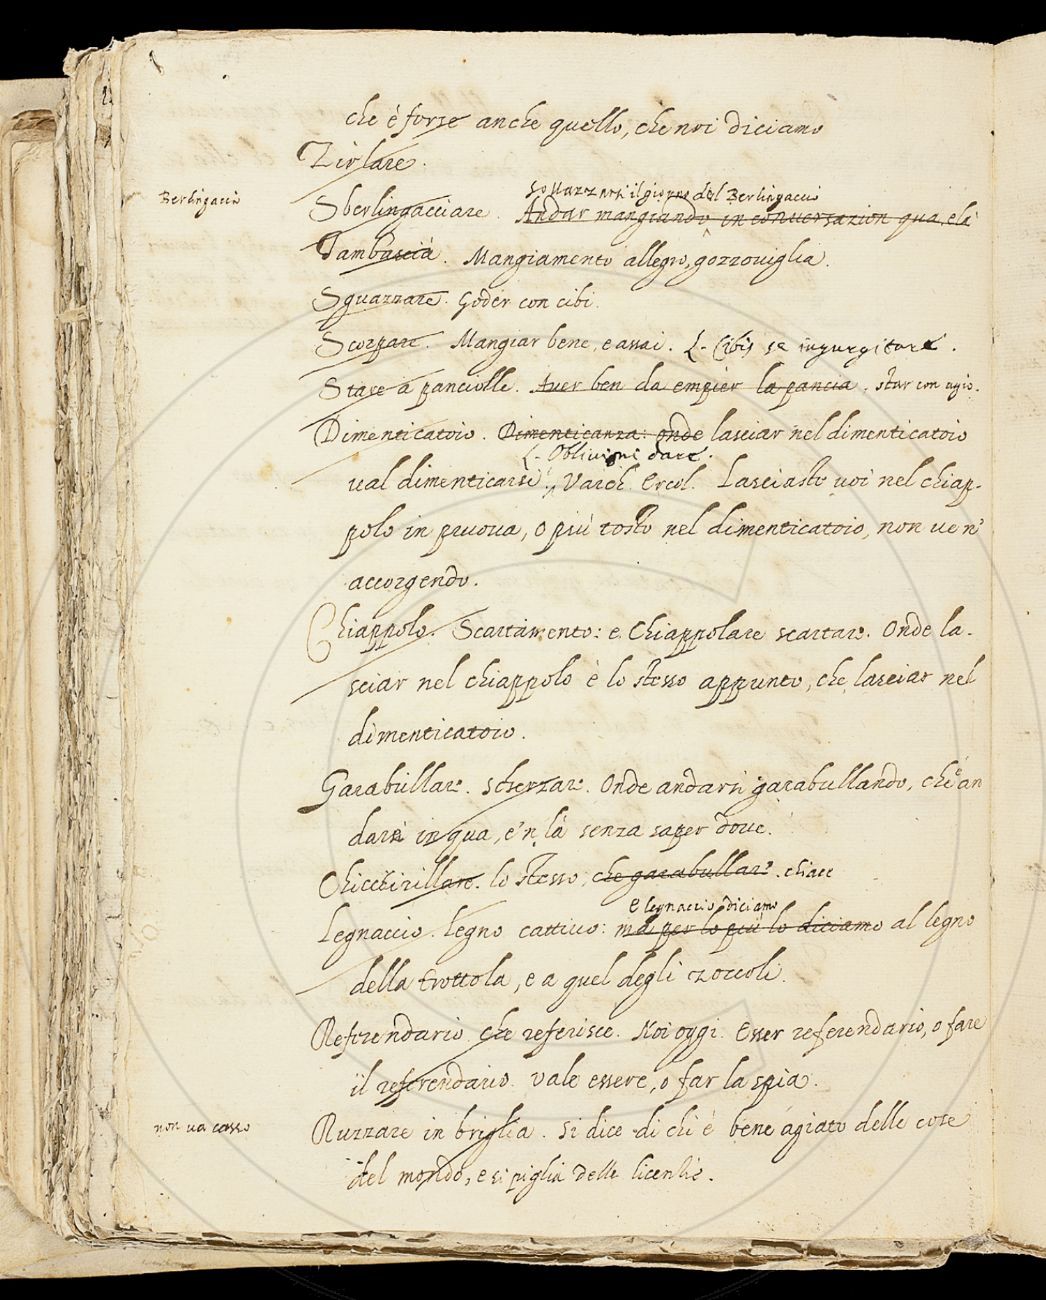 che è forse anche quello, che noi diciamo
Zirlare.
Berlingaccio
Sberlingacciare. Andar mangiando in conversazion qua, e là
sollazzarsi il giorno del Berlingaccio
Tambascià. Mangiamento allegro, gozzoviglia.
Sguazzare. Goder con cibi.
Scorpare. Mangiar bene, e assai. L. Cibis se ingurgitare.
Stare a panciolle. Aver ben da empier la pancia. star con agio.
Dimenticatoio. Dimenticanza: onde lasciar nel dimenticatoio
L. Oblivioni dare.
val dimenticarsi. Varch. Ercol. Lasciasto voi nel chiap-
polo in pruova, o più tosto nel dimenticatoio, non ve n'
accorgendo.
Chiappolo. Scartamento: e Chiappolare scartare. Onde la-
sciar nel chiappolo è lo stesso appunto, che lasciar nel
dimenticatoio.
Garabullare. Scherzare. Onde andarsi garabullando, ch'è an
dare in qua, e 'n là senza saper dove.
Chicchirillare. lo stesso, che garabullare. chiacc
e legnaccio diciamo
Legnaccio. Legno cattivo: ma per lo più lo diciamo al legno
della trottola, e a quel degli zoccoli.
Referendario che referisce. Noi oggi. Esser referendario, o fare
il referendario. vale essere, o far la spia.
non va casso
Ruzzare in briglia. Si dice di chi è bene agiato delle cose
del mondo, e si piglia delle licenzie.